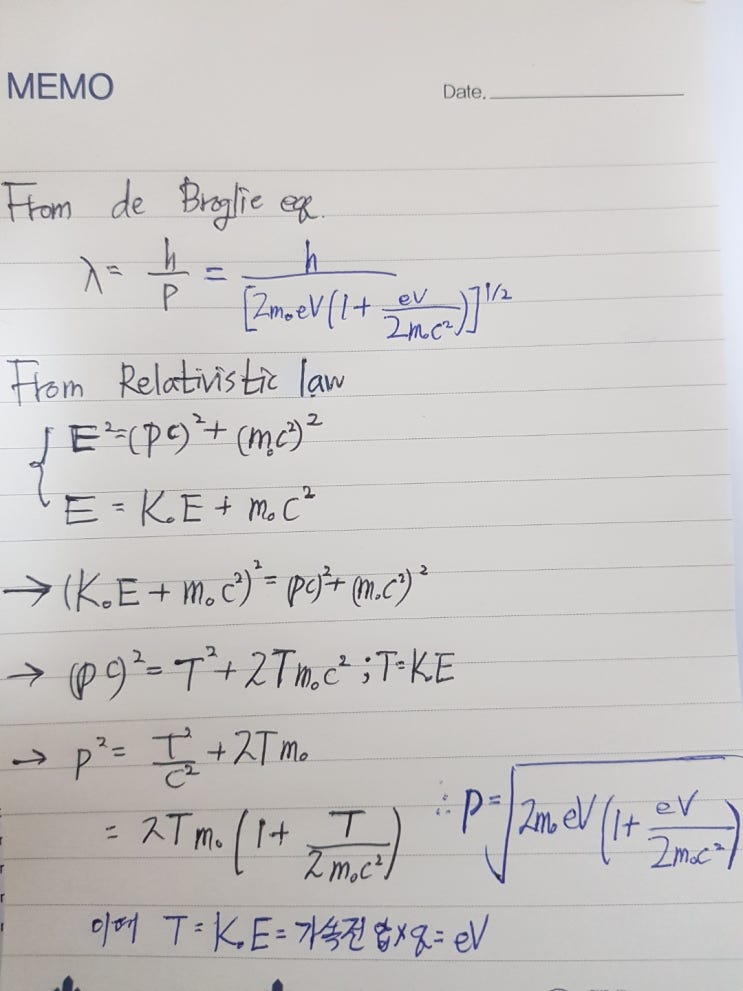 MEMO
Date.
From de Broglie eq.
λ = h/P = h/[2m₀eV(1 + eV/2m₀c²)]^1/2
From Relativistic law
{ E² = (PC)² + (m₀c²)²
E = K.E + m₀C²
→ (K.E + m₀c²)² = (PC)² + (m₀c²)²
→ (PC)² = T² + 2Tm₀c² ; T = K.E
→ P² = T²/C² + 2Tm₀
= 2Tm₀(1 + T/2m₀c²)
∴ P = √(2m₀eV(1 + eV/2m₀c²))
이때 T = K.E = 가속전압 × q = eV